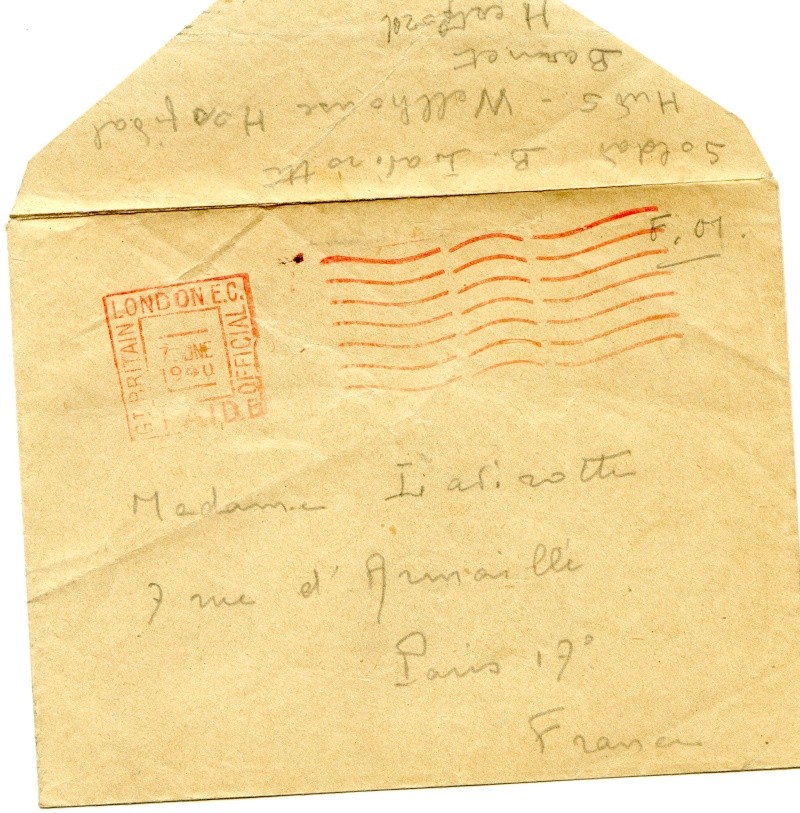 Soldat B. Lavirotte
Hut 5 - Wellhouse Hospital
Barnet
Hertford
F. M.
LONDON E.C.
GT. BRITAIN
OFFICIAL
PAID E
7 JUNE
1940
Madame Lavirotte
7 rue d'Armaillé
Paris 17°
France